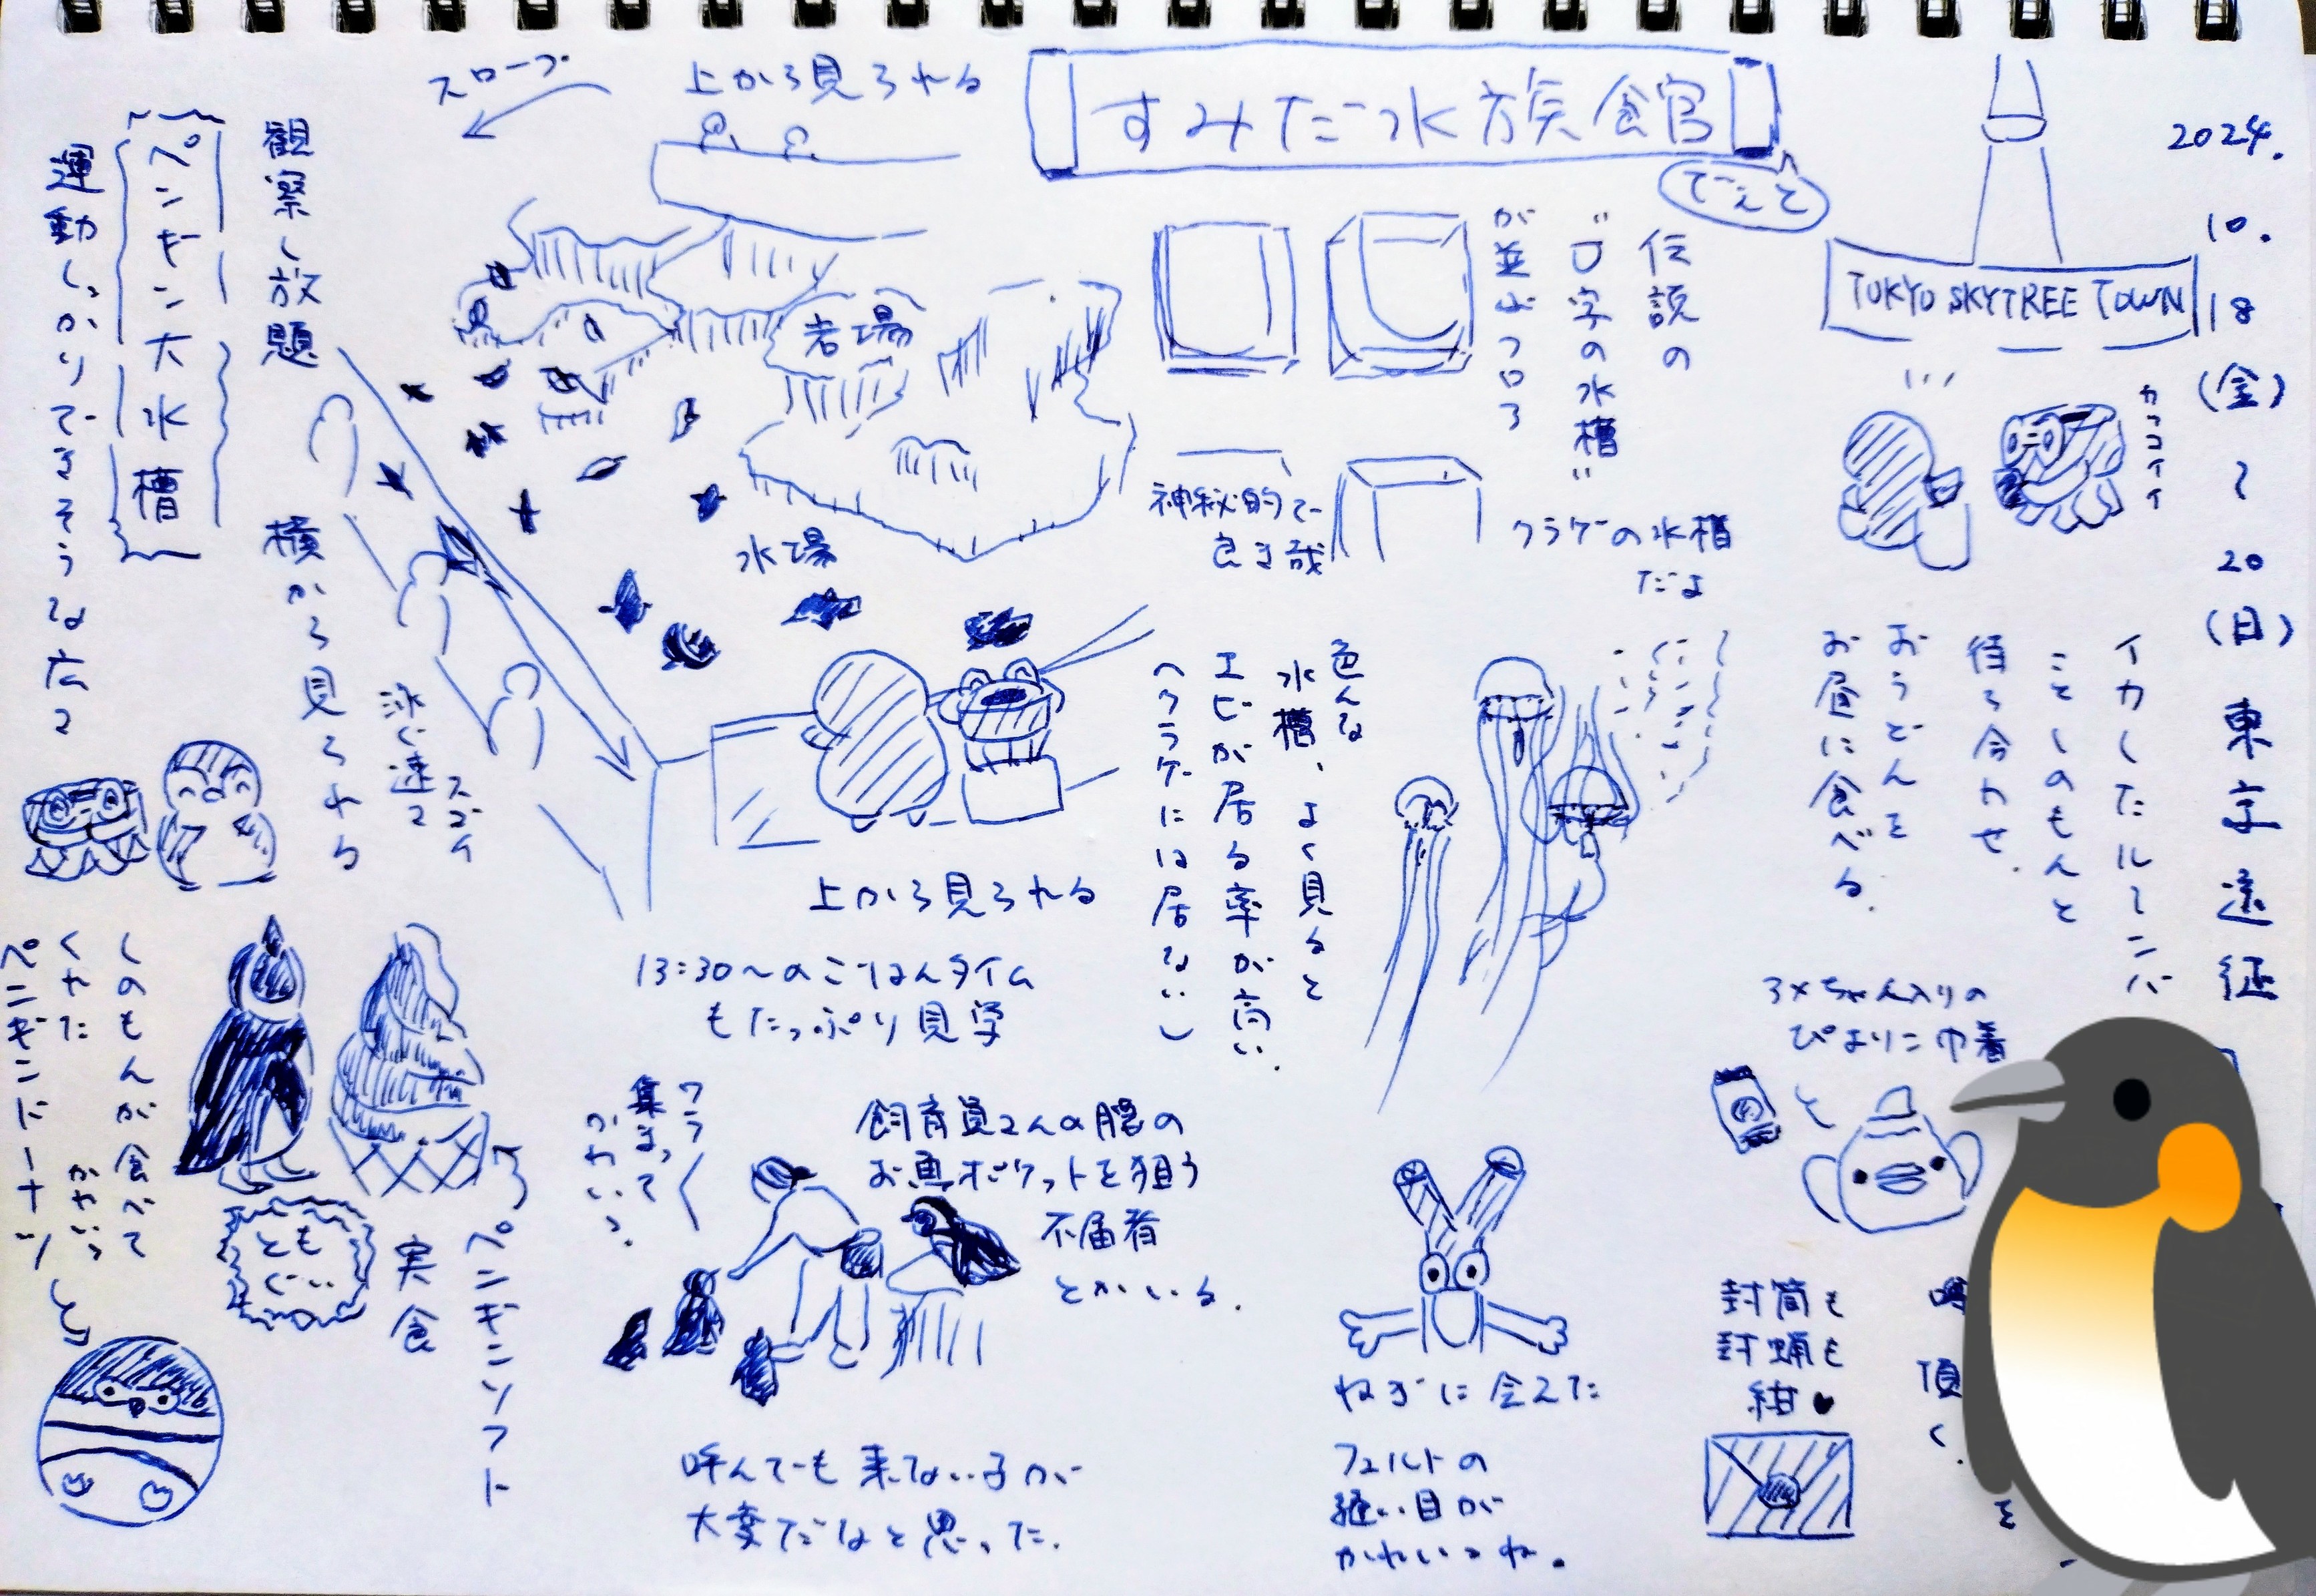 2024.
10.
18
(金)
〜
20
(日)
東京遠征
TOKYO SKYTREE TOWN
カッコイイ
イカしたルーンバ
ことしのもんと
待ち合わせ.
おうどんを
お昼に食べる.
ぴよりこ巾着
封筒も
封蝋も
紺
頂く.
すみだ水族館
でぇと
伝説の
"U字の水槽"
が並ぶフロア
クラゲの水槽
だよ
神秘的で
良き哉
色んな
水槽、よく見ると
エビが居る率が高い.
(クラゲには居ない)
ねぎに会えた
フェルトの
縫い目が
かわいいね。
上から見られる
スロープ
岩場
水場
観察し放題
ペンギン大水槽
運動しっかりできそうな広さ
横から見られる
スゴイ
泳ぐ速さ
上から見られる
13:30〜のごはんタイム
もたっぷり見学
飼育員さんの腰の
お魚ポケットを狙う
不届者
とかいる.
ワラワラ
集まって
かわいい.
呼んでも来ない子が
大変だなと思った.
ペンギンソフト
実食
ともぐい
しのもんが食べて
くれた かわいい
ペンギンドーナツ